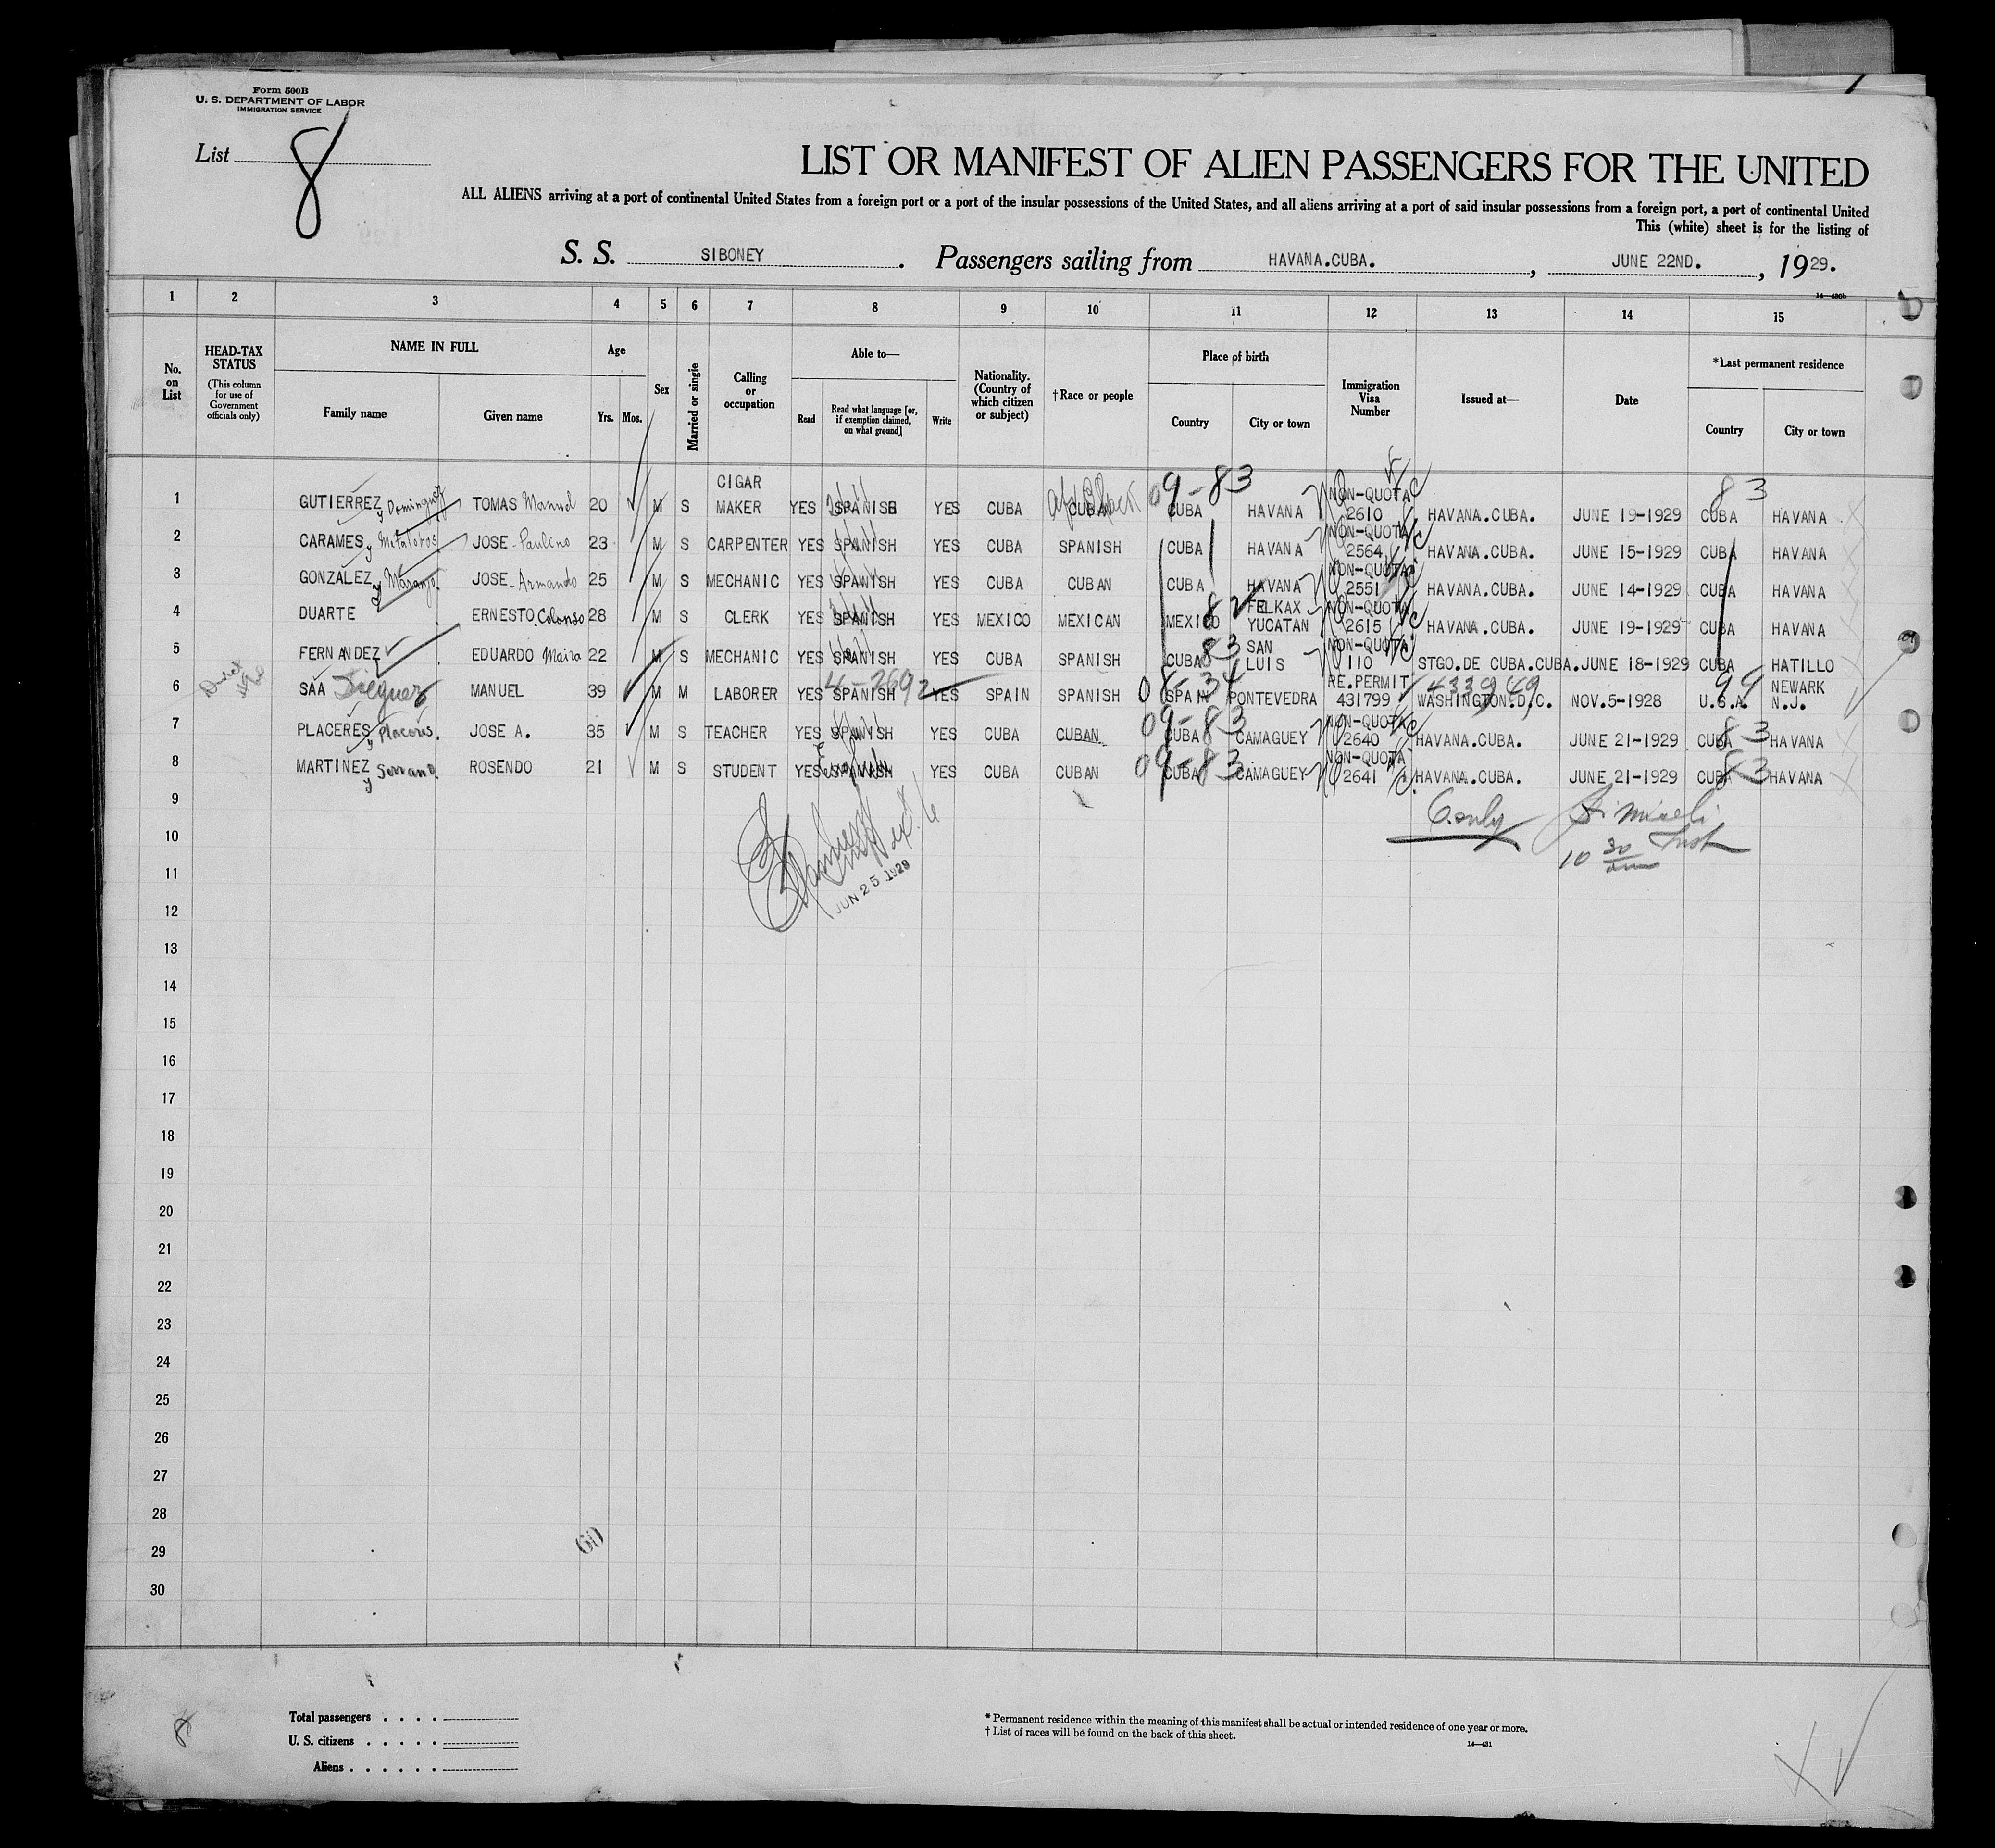 Form 500B
U. S. DEPARTMENT OF LABOR
IMMIGRATION SERVICE
List 8
LIST OR MANIFEST OF ALIEN PASSENGERS FOR THE UNITED
ALL ALIENS arriving at a port of continental United States from a foreign port or a port of the insular possessions of the United States, and all aliens arriving at a port of said insular possessions from a foreign port, a port of continental United
This (white) sheet is for the listing of
S. S. SIBONEY. Passengers sailing from HAVANA.CUBA., JUNE 22ND., 1929.
14—430b
1 2 3 4 5 6 7 8 9 10 11 12 13 14 15
No. on List
HEAD-TAX STATUS (This column for use of Government officials only)
NAME IN FULL
Family name Given name
Age
Yrs. Mos.
Sex
Married or single
Calling or occupation
Able to—
Read Read what language [or, if exemption claimed, on what ground] Write
Nationality. (Country of which citizen or subject)
†Race or people
Place of birth
Country City or town
Immigration Visa Number
Issued at—
Date
*Last permanent residence
Country City or town
1 GUTIERREZ y Dominguez TOMAS Manuel 20 M S CIGAR MAKER YES SPANISH YES CUBA CUBAN 09-83 CUBA HAVANA NON-QUOTA 2610 HAVANA.CUBA. JUNE 19-1929 83 CUBA HAVANA
2 CARAMES y JOSE-Paulino 23 M S CARPENTER YES SPANISH YES CUBA SPANISH CUBA HAVANA NON-QUOTA 2564 HAVANA.CUBA. JUNE 15-1929 CUBA HAVANA
3 GONZALEZ y Naranjo. JOSE-Armando 25 M S MECHANIC YES SPANISH YES CUBA CUBAN CUBA HAVANA NON-QUOTA 2551 HAVANA.CUBA. JUNE 14-1929 CUBA HAVANA
4 DUARTE ERNESTO 28 M S CLERK YES SPANISH YES MEXICO MEXICAN MEXICO 82 FELKAX YUCATAN NON-QUOTA 2615 HAVANA.CUBA. JUNE 19-1929 CUBA HAVANA
5 FERNANDEZ EDUARDO 22 M S MECHANIC YES SPANISH YES CUBA SPANISH CUBA 83 SAN LUIS NON-QUOTA 110 STGO.DE CUBA.CUBA. JUNE 18-1929 CUBA HATILLO
6 SAA Dieguez MANUEL 39 M M LABORER YES 4-2692 SPANISH YES SPAIN SPANISH 08-34 SPAIN PONTEVEDRA RE.PERMIT 431799 433949 WASHINGTON.D.C. NOV.5-1928 99 U.S.A. NEWARK N.J.
7 PLACERES y Placeres. JOSE A. 35 M S TEACHER YES SPANISH YES CUBA CUBAN 09-83 CUBA CAMAGUEY NON-QUOTA 2640 HAVANA.CUBA. JUNE 21-1929 CUBA 83 HAVANA
8 MARTINEZ y Serrano. ROSENDO 21 M S STUDENT YES SPANISH YES CUBA CUBAN 09-83 CUBA CAMAGUEY NON-QUOTA 2641 HAVANA.CUBA. JUNE 21-1929 CUBA 83 HAVANA
9
10
11
12
13
14
15
16
17
18
19
20
21
22
23
24
25
26
27
28
29
30
JUN 25 1929
6.only
10 30
(60)
8
Total passengers . . . .
U. S. citizens . . . . .
Aliens . . . . . .
* Permanent residence within the meaning of this manifest shall be actual or intended residence of one year or more.
† List of races will be found on the back of this sheet.
14—431